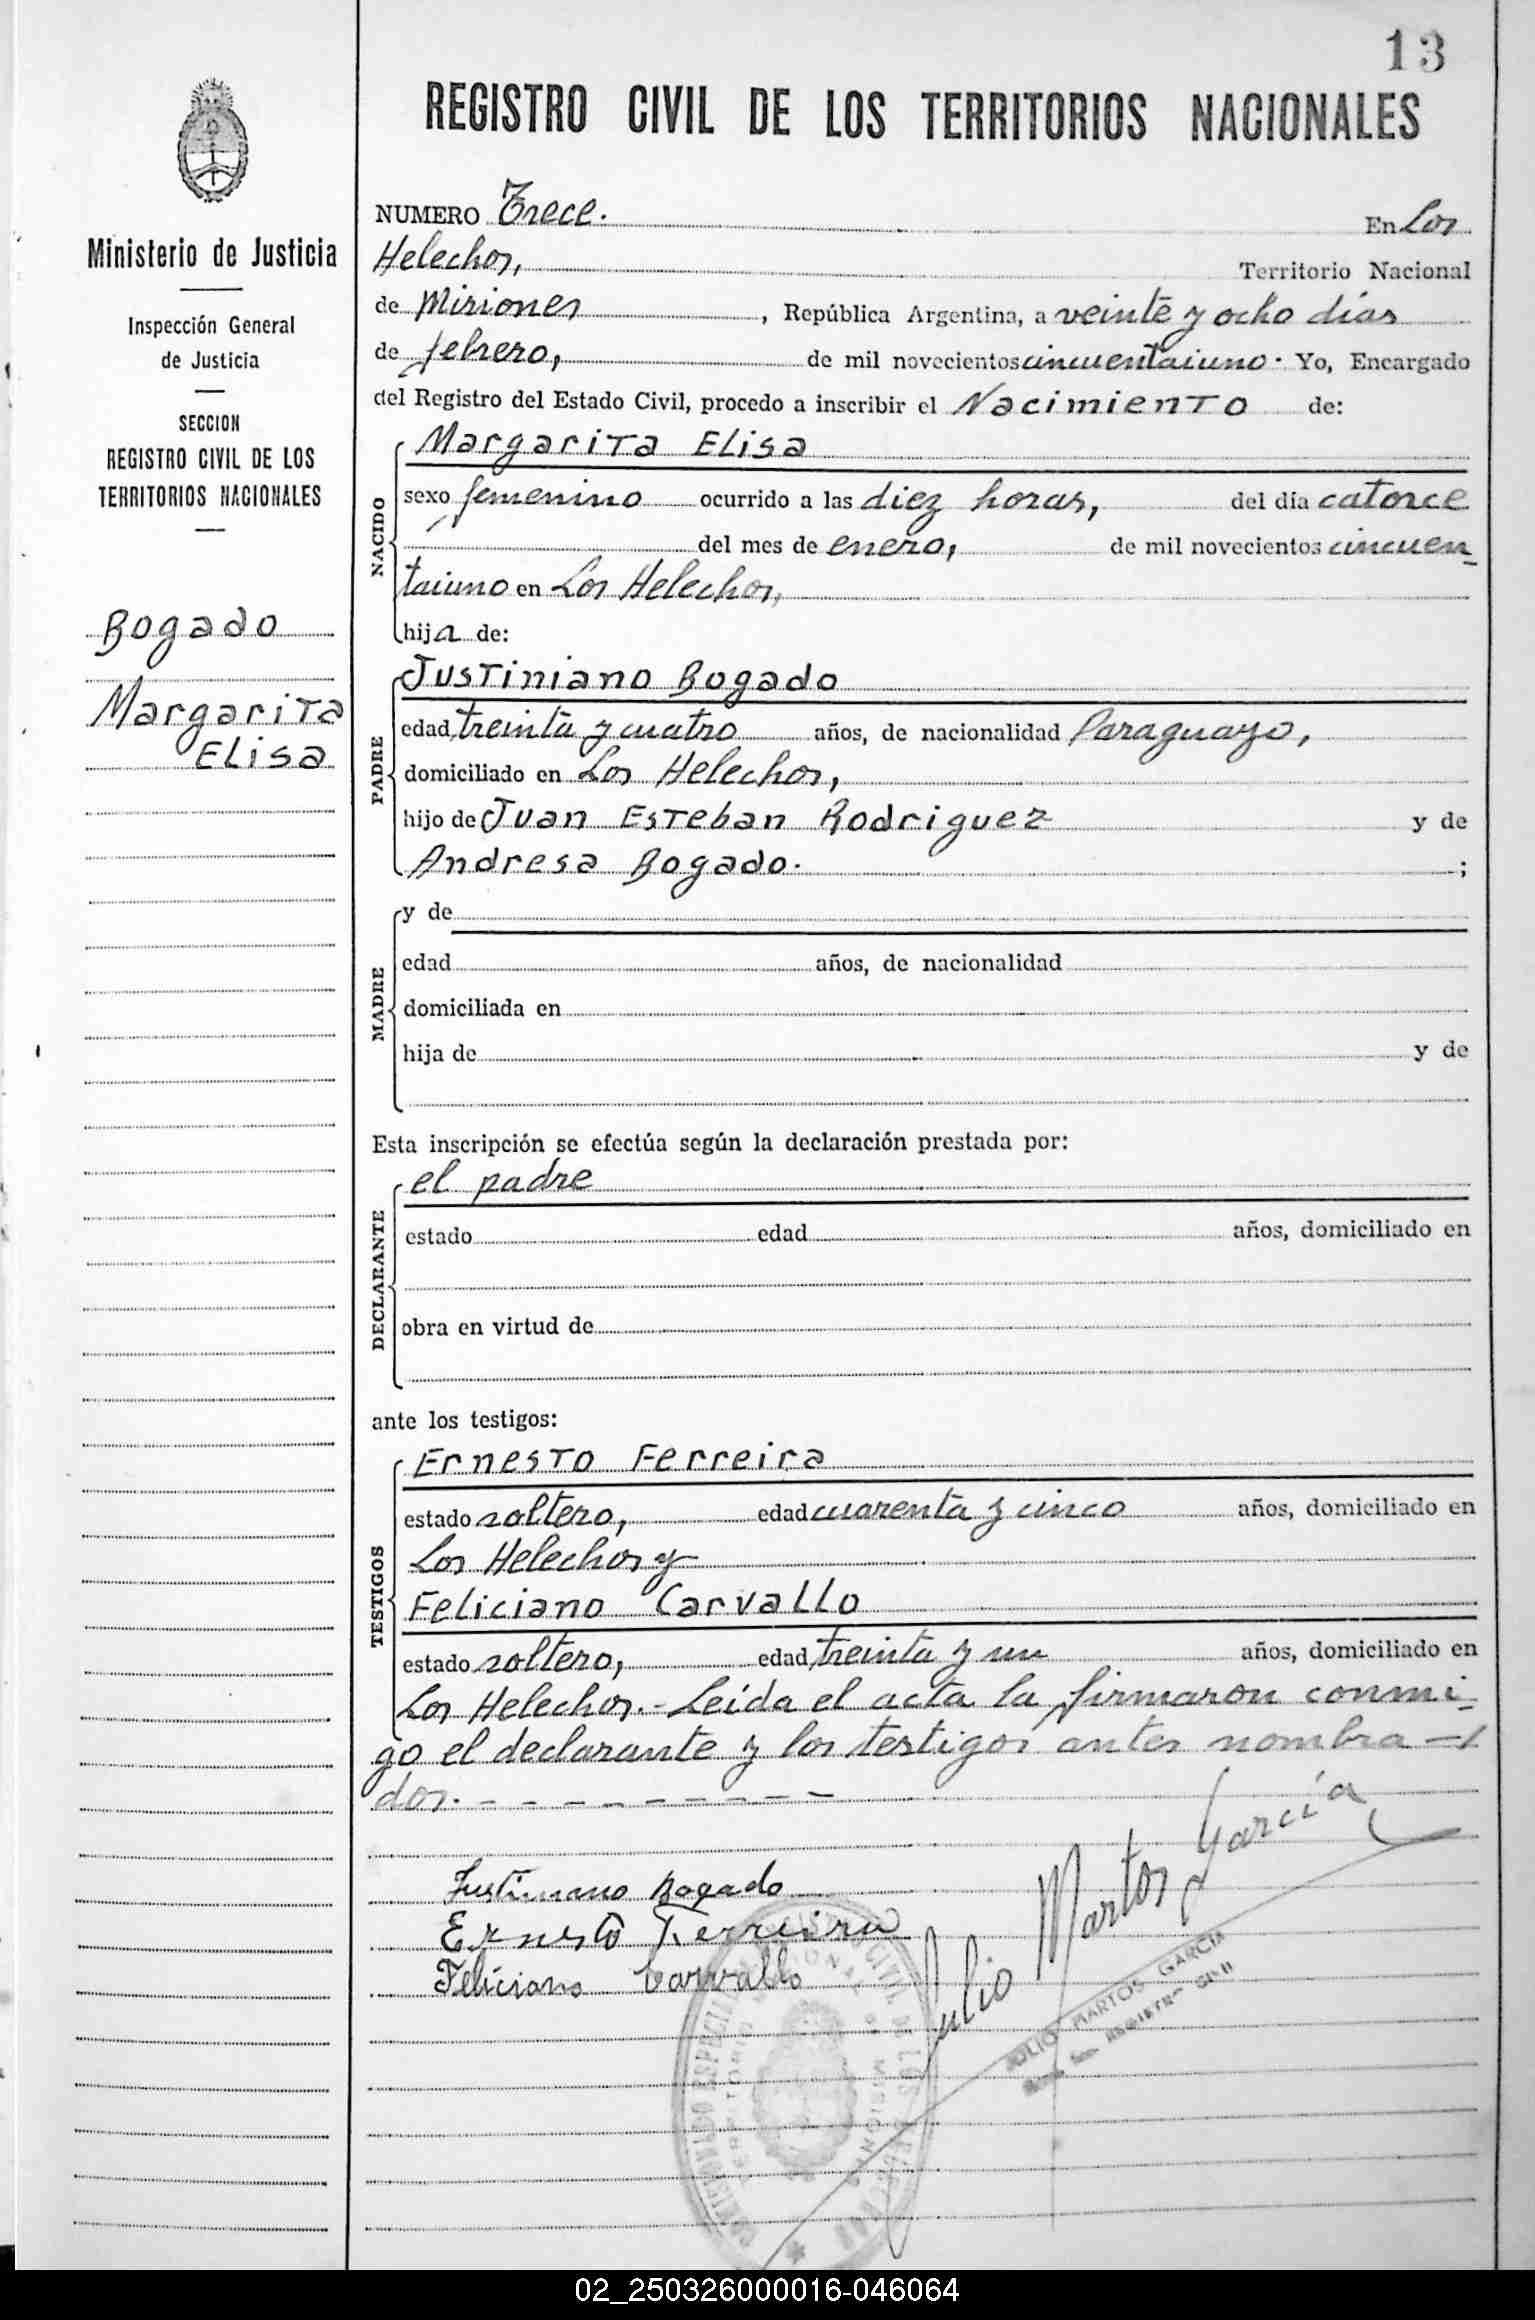 13
REGISTRO CIVIL DE LOS TERRITORIOS NACIONALES
Ministerio de Justicia
Inspección General
de Justicia
SECCION
REGISTRO CIVIL DE LOS
TERRITORIOS NACIONALES
Bogado
Margarita
Elisa
NUMERO Trece. En Los
Helechos, Territorio Nacional
de Misiones, República Argentina, a veinte y ocho días
de febrero, de mil novecientos cincuentaiuno. Yo, Encargado
del Registro del Estado Civil, procedo a inscribir el Nacimiento de:
NACIDO
Margarita Elisa
sexo femenino ocurrido a las diez horas, del día catorce
del mes de enero, de mil novecientos cincuen-
taiuno en Los Helechos,
hija de:
PADRE
Justiniano Bogado
edad treinta y cuatro años, de nacionalidad Paraguayo,
domiciliado en Los Helechos,
hijo de Juan Esteban Rodriguez y de
Andresa Bogado. ;
MADRE
y de
edad años, de nacionalidad
domiciliada en
hija de y de
Esta inscripción se efectúa según la declaración prestada por:
DECLARANTE
el padre
estado edad años, domiciliado en
obra en virtud de
ante los testigos:
TESTIGOS
Ernesto Ferreira
estado soltero, edad cuarenta y cinco años, domiciliado en
Los Helechos y
Feliciano Carvallo
estado soltero, edad treinta y un años, domiciliado en
Los Helechos.- Leída el acta la firmaron conmi-
go el declarante y los testigos antes nombra-
dos. - - - - - - - - - -
Justiniano Bogado
Ernesto Ferreira
Feliciano Carvallo
Julio Martos García
JULIO MARTOS GARCIA
02_250326000016-046064